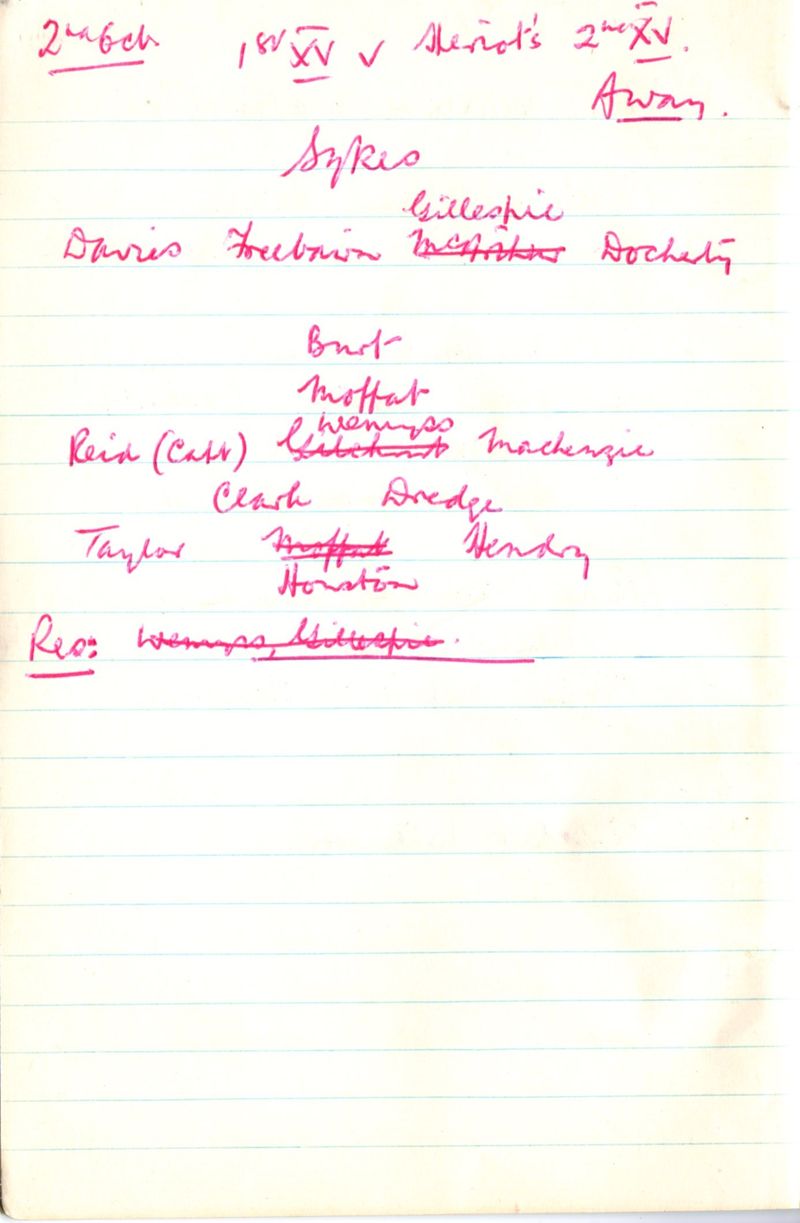 2nd Feb 1st XV v Heriot's 2nd XV.
Away.
Sykes
Gillespie
Davies Freebairn McArthur Docherty
Burt
Moffat
Wemyss
Reid (Capt) Gilchrist Mackenzie
Clark Dredge
Taylor Moffat Hendry
Houston
Res: Wemyss, Gillespie.